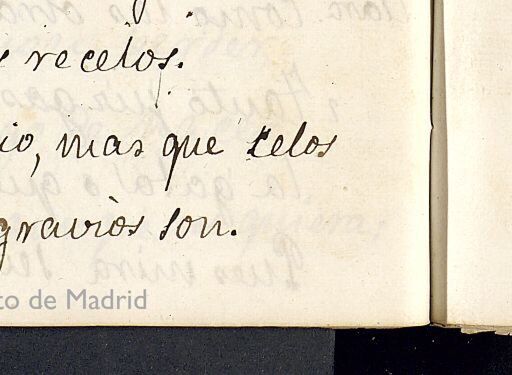 recelos.
io, mas que celos
gravios son.
to de Madrid